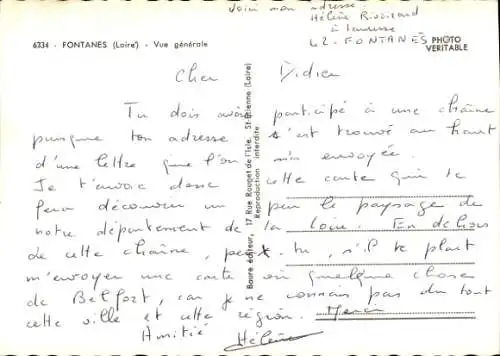 Voici mon adresse
Hélène
à
42 - FONTANÈS
6334 - FONTANES (Loire) - Vue générale
PHOTO
VERITABLE
Cher Didier
Tu dois avoir participé à une chaîne
puisque ton adresse s'est trouvé au haut
d'une lettre que l'on m'a envoyée.
Je t'envoie donc cette carte qui te
fera découvrir un peu le paysage de
notre département de la Loire. En dehors
de cette chaîne, peux-tu, s'il te plaît
m'envoyer une carte ou quelque chose
de Belfort, car je ne connais pas du tout
cette ville et cette région. Merci
Amitié Hélène
Baure éditeur, 17 Rue Rouget de l'Isle, St-Etienne (Loire)
Reproduction interdite